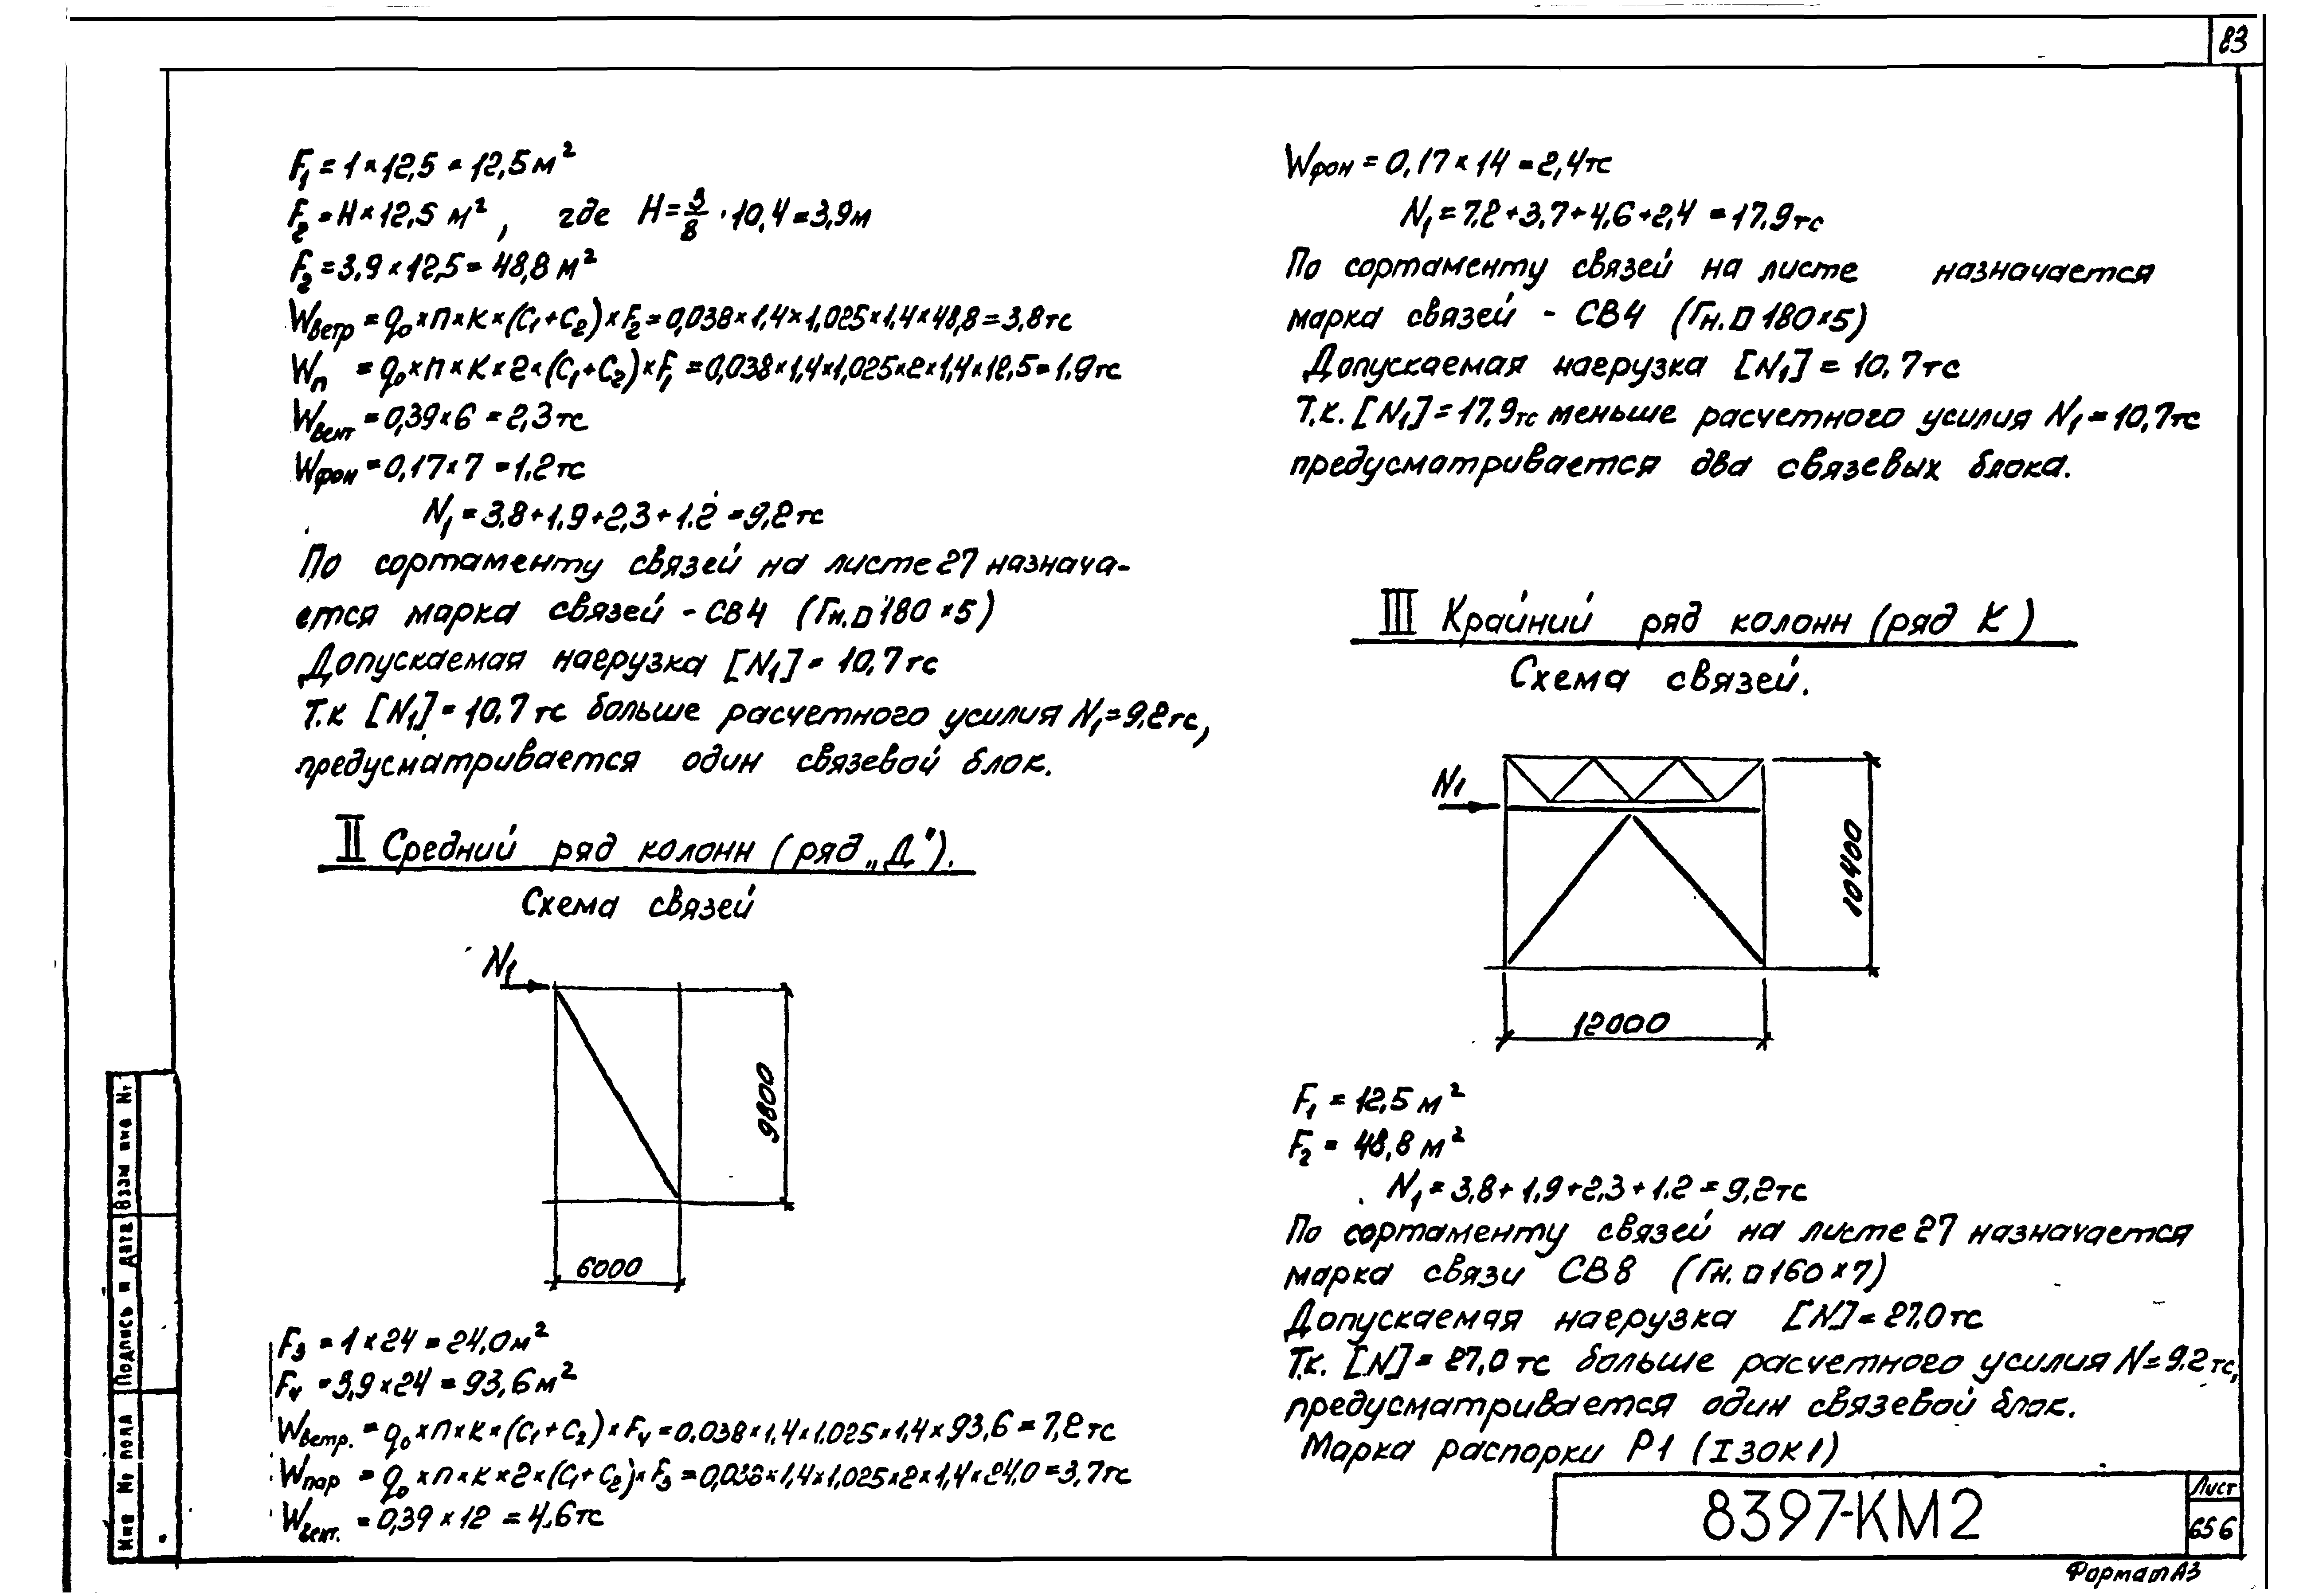 83
F₁ = 1 × 12,5 = 12,5 м²
F₂ = H × 12,5 м², где H = 3/8 · 10,4 = 3,9 м
F₂ = 3,9 × 12,5 = 48,8 м²
Wветр = q₀ × п × к × (C₁ + C₂) × F₂ = 0,038 × 1,4 × 1,025 × 1,4 × 48,8 = 3,8 тс
Wп = q₀ × п × к × 2 × (C₁ + C₂) × F₁ = 0,038 × 1,4 × 1,025 × 2 × 1,4 × 12,5 = 1,9 тс
Wвент = 0,39 × 6 = 2,3 тс
Wфон = 0,17 × 7 = 1,2 тс
N₁ = 3,8 + 1,9 + 2,3 + 1,2 = 9,2 тс
По сортаменту связей на листе 27 назнача-
ется марка связей - СВ4 (Гн.□ 180 × 5)
Допускаемая нагрузка [N₁] = 10,7 тс
Т.к [N₁] = 10,7 тс больше расчетного усилия N₁ = 9,2 тс,
предусматривается один связевой блок.
II Средний ряд колонн (ряд „Д").
Схема связей
N₁
9800
6000
F₃ = 1 × 24 = 24,0 м²
F₄ = 3,9 × 24 = 93,6 м²
Wветр. = q₀ × п × к × (C₁ + C₂) × F₄ = 0,038 × 1,4 × 1,025 × 1,4 × 93,6 = 7,2 тс
Wпар = q₀ × п × к × 2 × (C₁ + C₂) × F₃ = 0,038 × 1,4 × 1,025 × 2 × 1,4 × 24,0 = 3,7 тс
Wвент. = 0,39 × 12 = 4,6 тс
Wфон = 0,17 × 14 = 2,4 тс
N₁ = 7,2 + 3,7 + 4,6 + 2,4 = 17,9 тс
По сортаменту связей на листе назначается
марка связей - СВ4 (Гн.□ 180 × 5)
Допускаемая нагрузка [N₁] = 10,7 тс
Т.к. [N₁] = 17,9 тс меньше расчетного усилия N₁ = 10,7 тс
предусматривается два связевых блока.
III Крайний ряд колонн (ряд К)
Схема связей.
N₁
10400
12000
F₁ = 12,5 м²
F₂ = 48,8 м²
N₁ = 3,8 + 1,9 + 2,3 + 1,2 = 9,2 тс
По сортаменту связей на листе 27 назначается
марка связи СВ8 (Гн.□ 160 × 7)
Допускаемая нагрузка [N] = 27,0 тс
Т.к. [N] = 27,0 тс больше расчетного усилия N = 9,2 тс,
предусматривается один связевой блок.
Марка распорки Р1 (I 30К1)
Инв № подл
Подпись и дата
Взам инв №
8397-КМ2
Лист
656
Формат А3